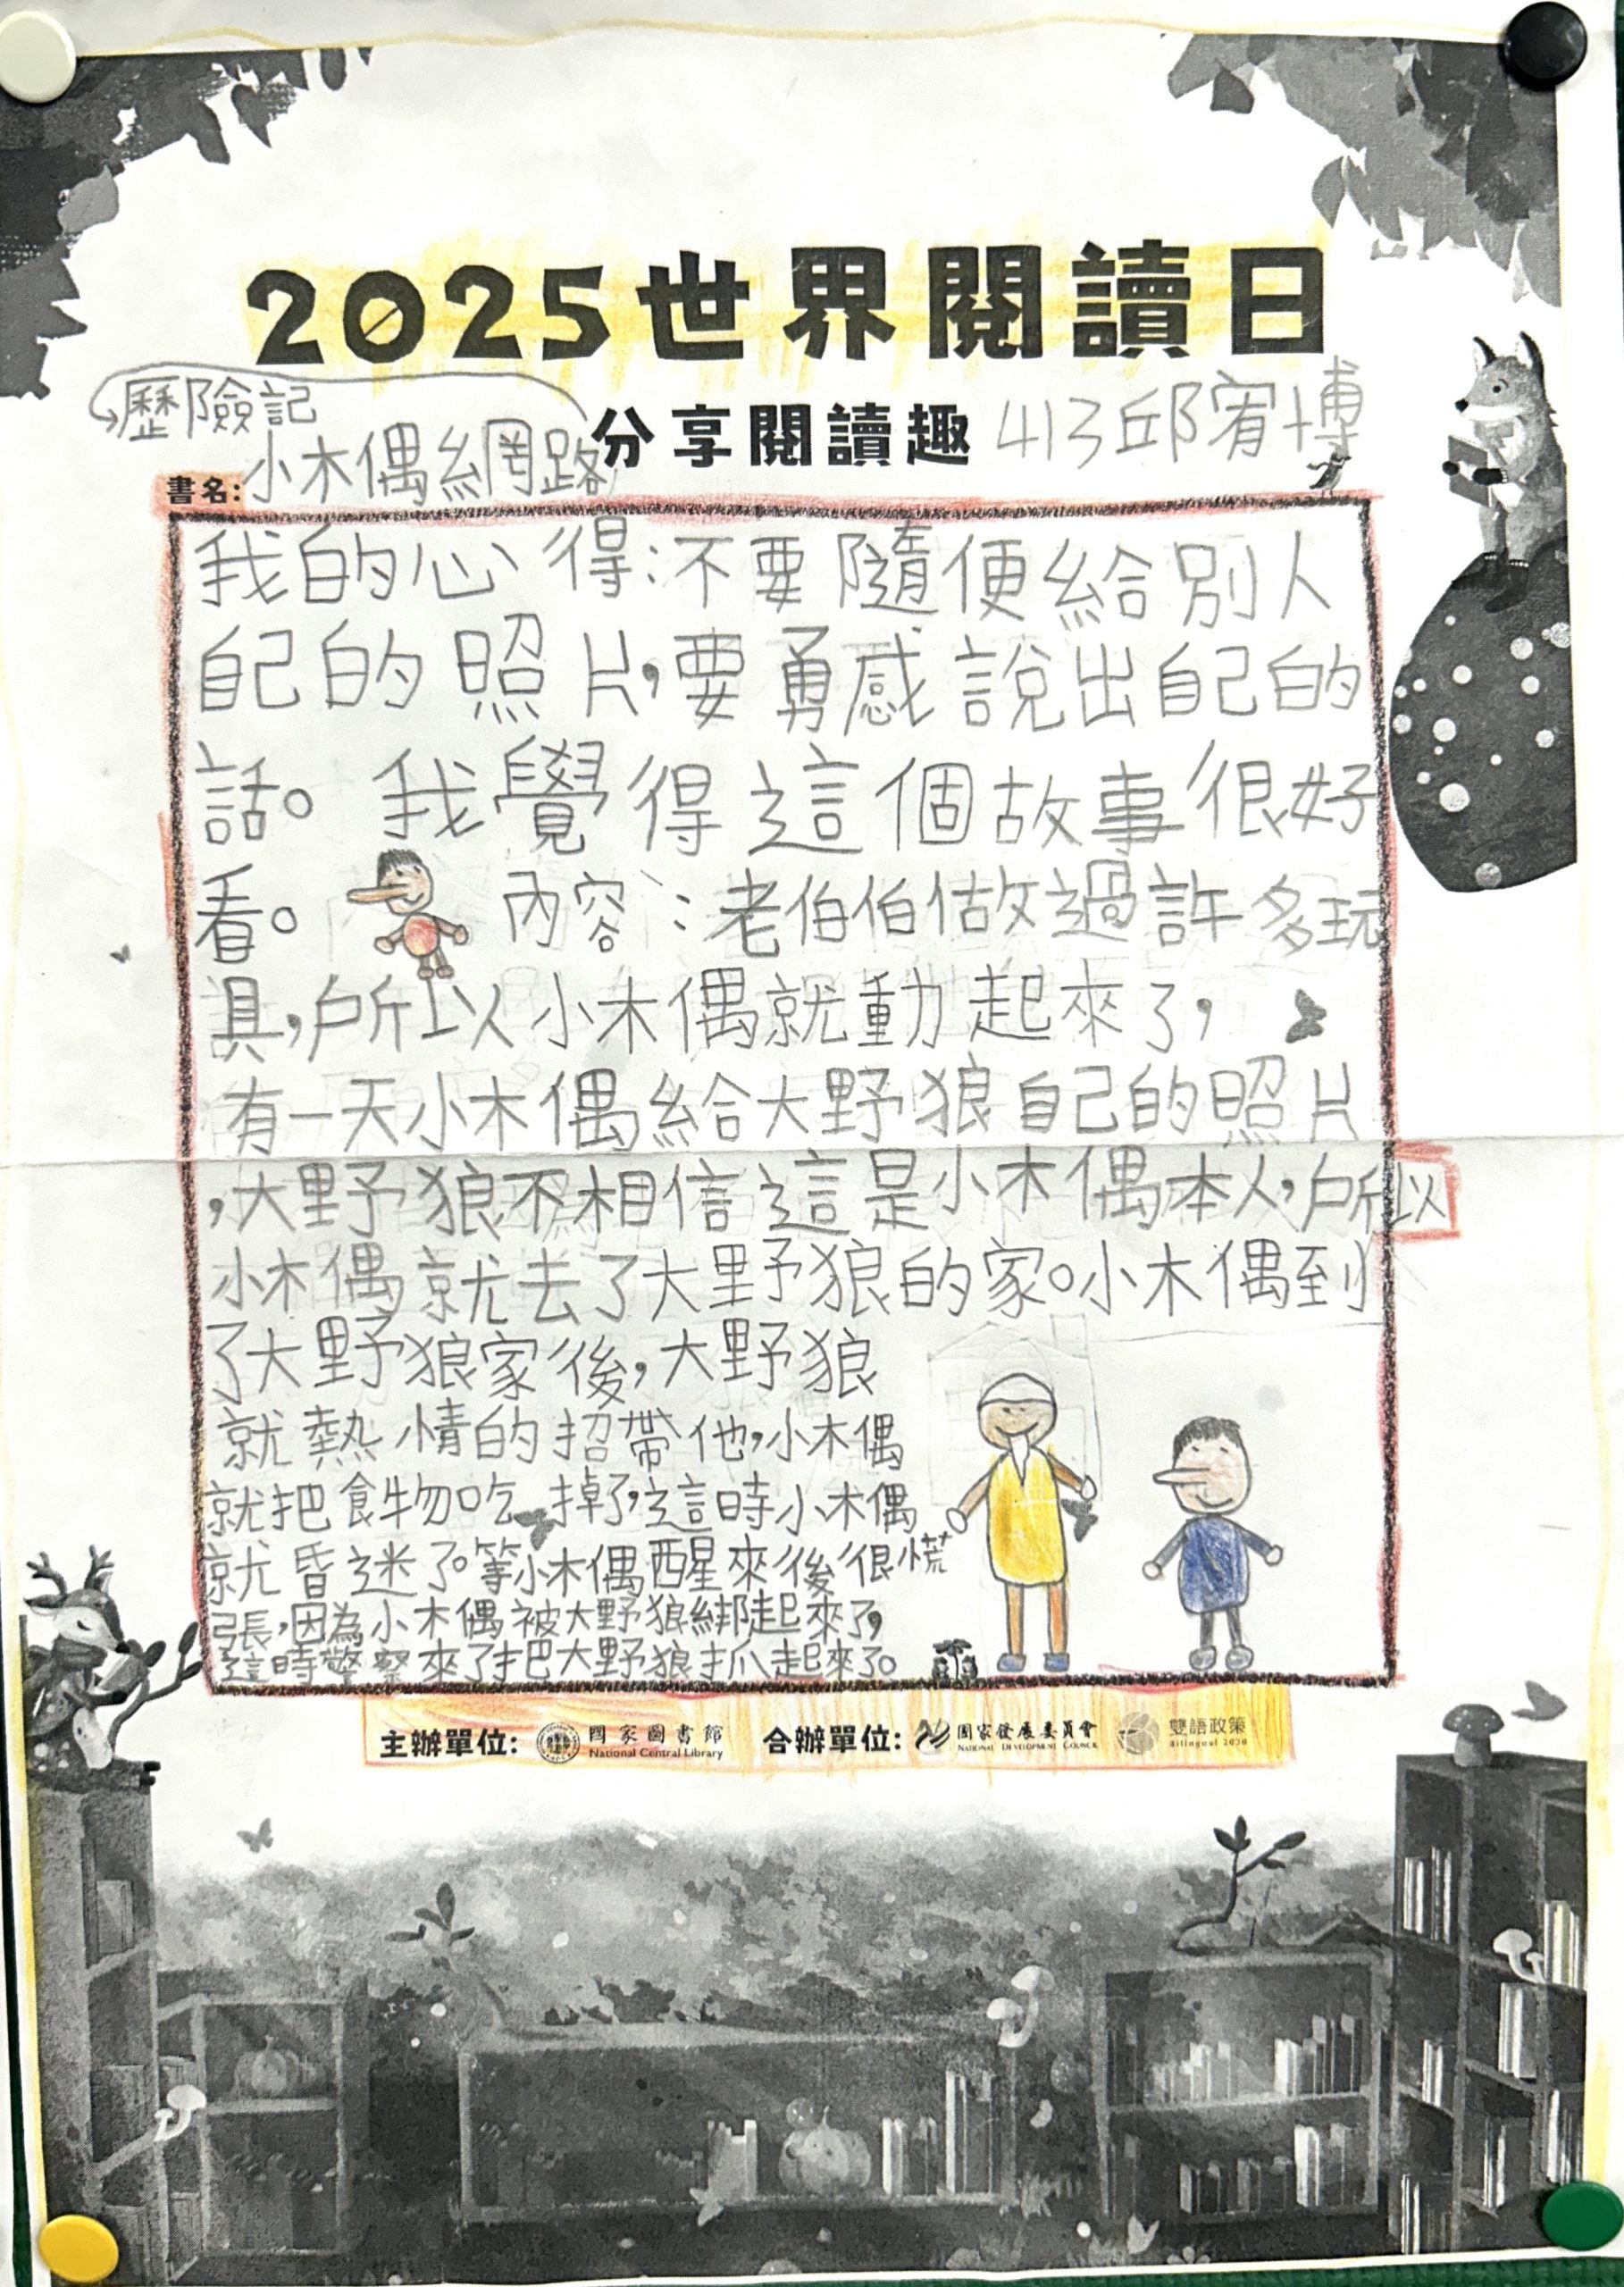 2025世界閱讀日
歷險記
分享閱讀趣 413邱宥博
書名:小木偶網路
我的心得:不要隨便給別人
自己的照片,要勇感說出自己的
話。我覺得這個故事很好
看。 內容:老伯伯做過許多玩
具,所以小木偶就動起來了,
有一天小木偶給大野狼自己的照片
,大野狼不相信這是小木偶本人,所以
小木偶就去了大野狼的家。小木偶到
了大野狼家後,大野狼
就熱情的招帶他,小木偶
就把食物吃掉了,這時小木偶
就昏迷了。等小木偶醒來後很慌
張,因為小木偶被大野狼綁起來了,
這時警察來了把大野狼抓起來了。
主辦單位: 國家圖書館 合辦單位: 國家發展委員會 雙語政策
National Central Library NATIONAL DEVELOPMENT COUNCIL Bilingual 2030